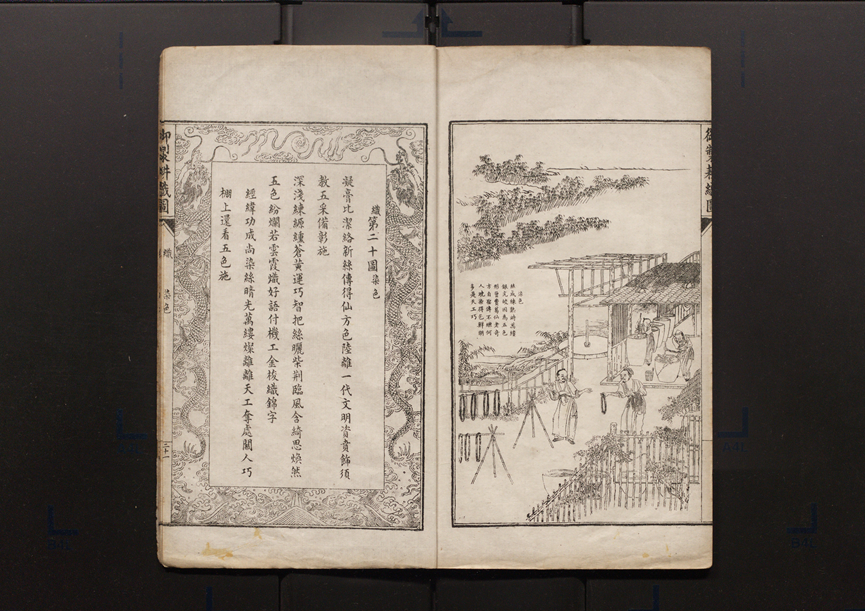 御製耕織圖
染色
織第二十圖染色
凝膏比潔絡新絲傳得仙方色陸離一代文明資賁飾須
教五采備彰施
深淺練緗纁蒼黃運巧智把絲曬柴荆臨風含綺思煥然
五色紛爛若雲霞熾好語付機工金梭織錦字
經緯功成尚染絲晴光萬縷燦離離天工奪處關人巧
棚上還看五色施
御製耕織圖
織
染色